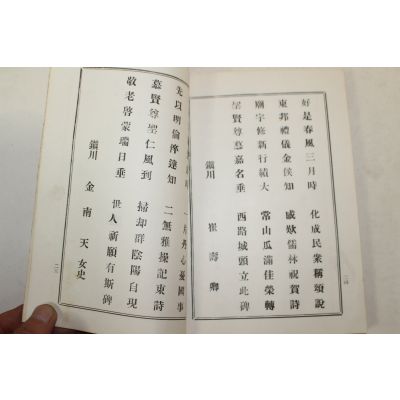 好是春風三月時 化成民業稱頌說
東邦禮儀金侯知 咸歎儒林祝賀詩
廟宇修新行績大 常山瓜滿佳榮轉
聖賢尊慕嘉名垂 西路城頭立此碑
鎭川 崔壽卿
丹心憂國事
先以明倫淬達知 二無雅操記東詩
慕賢尊聖仁風到 掃却群陰陽自現
敬老啓蒙瑞日垂 世人祈願有斯碑
鎭川 金南天女史